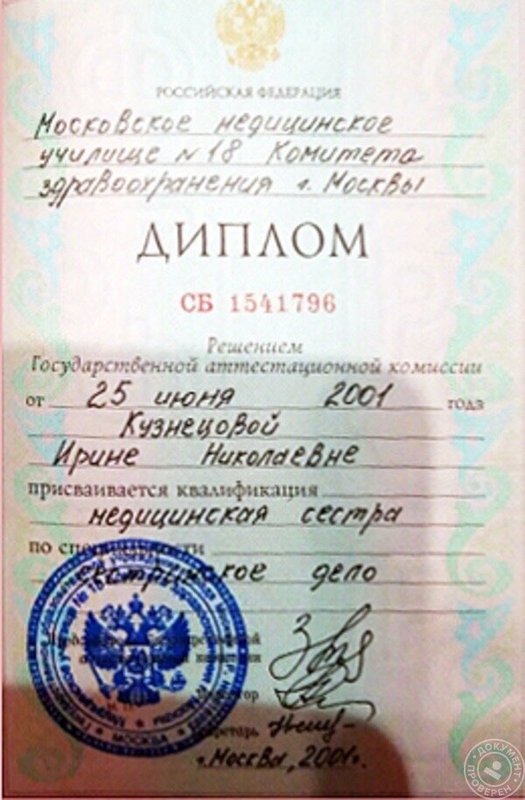 РОССИЙСКАЯ ФЕДЕРАЦИЯ
Московское медицинское
училище №18 Комитета
здравоохранения г. Москвы
ДИПЛОМ
СБ 1541796
Решением
Государственной аттестационной комиссии
от 25 июня 2001 года
Кузнецовой
Ирине Николаевне
присваивается квалификация
медицинская сестра
по специальности
сестринское дело
г. Москвы, 2001г.
МОСКВА
ДОКУМЕНТ
ПРОВЕРЕН